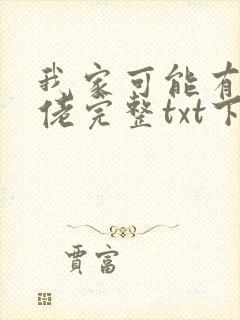 我家可能有
佬完整txt下
贾富